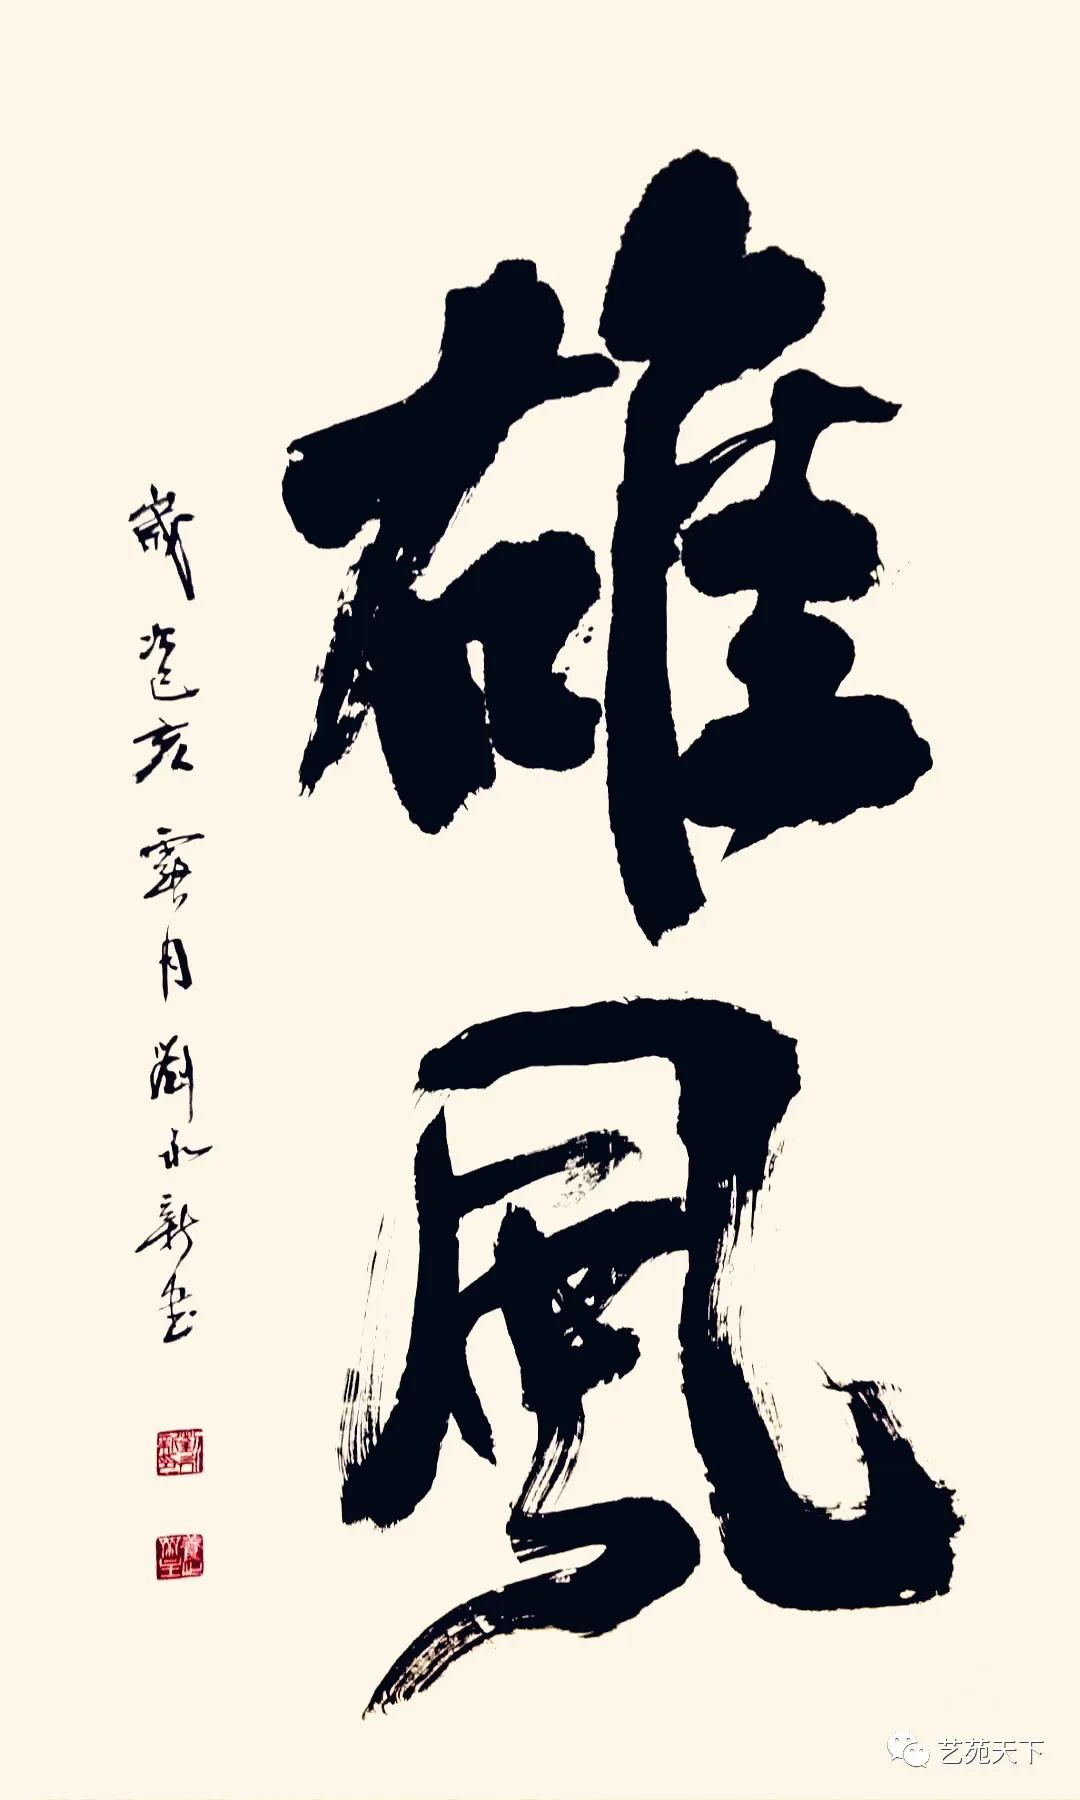 雄風
歲次己亥雲月劉永新書
艺苑天下